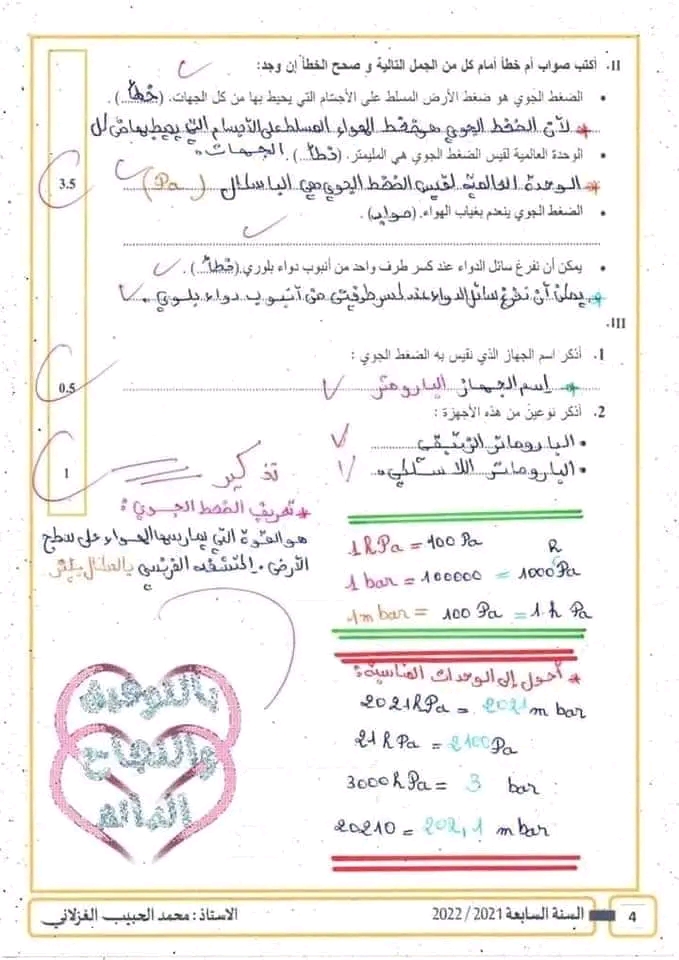 II. أكتب صواب أم خطأ أمام كل من الجمل التالية و صحح الخطأ إن وجد:
• الضغط الجوي هو ضغط الأرض المسلط على الأجسام التي يحيط بها من كل الجهات. (خطأ).
* لأن الضغط الجوي هو ضغط الهواء المسلط على الأجسام التي يحيط بها من كل
الجهات.
• الوحدة العالمية لقيس الضغط الجوي هي المليمتر. (خطأ).
3.5
* الوحدة العالمية لقيس الضغط الجوي هي الباسكال (Pa)
• الضغط الجوي ينعدم بغياب الهواء. (صواب).
• يمكن أن نفرغ سائل الدواء عند كسر طرف واحد من أنبوب دواء بلوري.(خطأ).
* يمكن أن نفرغ سائل الدواء عند كسر طرفين من أنبوب دواء بلوري.
III.
1. أذكر اسم الجهاز الذي نقيس به الضغط الجوي :
0.5
* اسم الجهاز البارومتر
2. أذكر نوعين من هذه الأجهزة :
• البارومتر الزئبقي
• البارومتر اللاسائلي.
1
تذكير
* تعريف الضغط الجوي:
هو القوة التي يمارسها الهواء على سطح
الأرض. اكتشفه الفرنسي
1 hPa = 100 Pa
1 bar = 100000 = 1000 hPa
1m bar = 100 Pa = 1 h Pa
* أحول إلى الوحدات المناسبة:
2021 hPa = 2021 m bar
21 hPa = 2100 Pa
3000 hPa = 3 bar
20210 = 202,1 m bar
بالتوفيق
والنجاح
الدائم
4
السنة السابعة 2021 / 2022
الاستاذ : محمد الحبيب الغزلاني